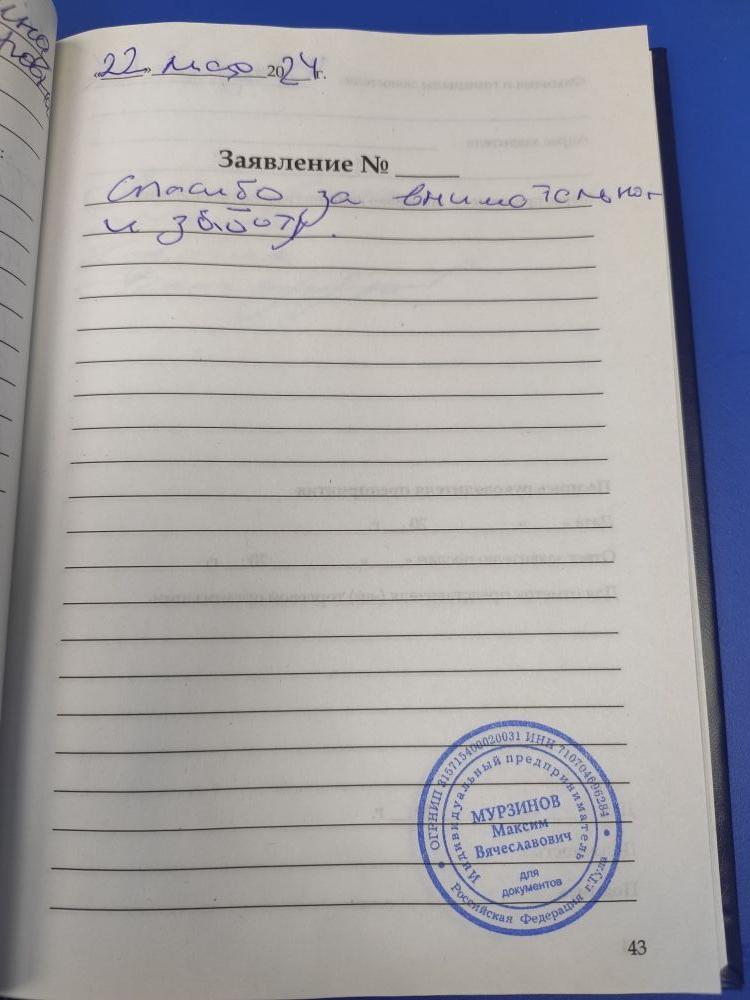 «22» мая 2024г.
Заявление №
Спасибо за внимательнос
и заботу.
ОГРНИП 315715400020031 ИНН 710704696284
Индивидуальный предприниматель
МУРЗИНОВ
Максим
Вячеславович
для
документов
Российская Федерация г.Тула
43